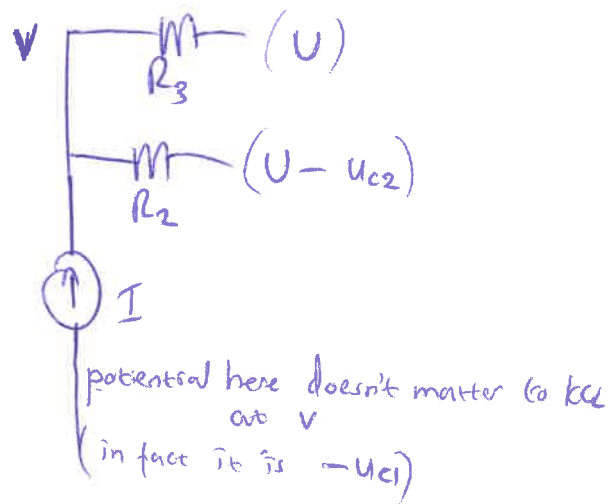 V
(U)
R3
(U - uc2)
R2
I
potential here doesn't matter to KCL
at V
(in fact it is -uc1)